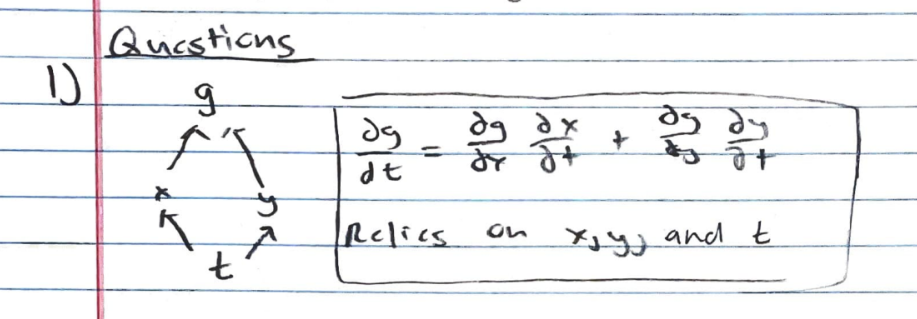 Questions
1)
g
x y
t
∂g/dt = ∂g/∂x ∂x/∂t + ∂g/∂y ∂y/∂t
Relies on x, y, and t